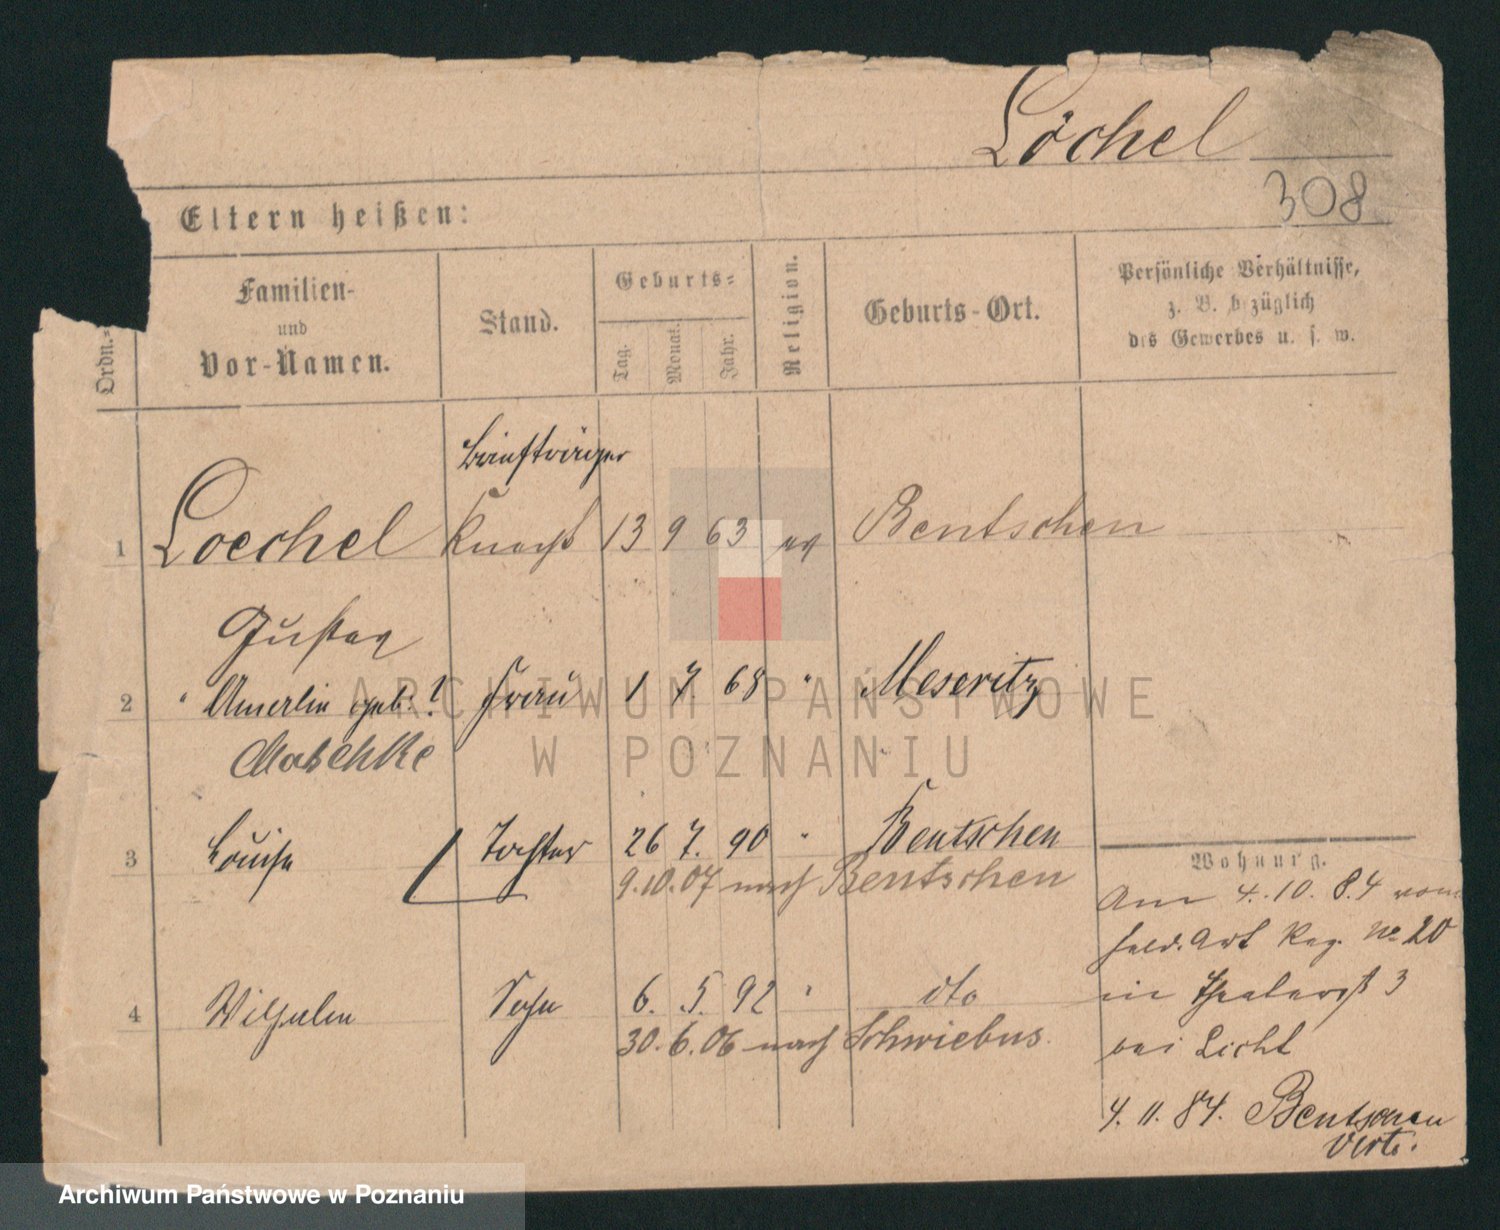 Löchel
308
Eltern heißen:
Ordn.=
Familien-
und
Vor-Namen.
Stand.
Geburts=
Tag.
Monat.
Jahr.
Religion.
Geburts-Ort.
Persönliche Verhältnisse,
z. B. bezüglich
des Gewerbes u. s. w.
Briefträger
1 Loechel Knecht 13 9 63 ev Bentschen
Gustav
2 " geb: ? Frau 1 7 68 " Meseritz
Maschke
3 Louise Tochter 26 7. 90 " Bentschen
9.10.07 nach Bentschen
4 Wilhelm Sohn 6. 5. 92 " dto
30.6.06 nach Schwiebus.
Wohnung.
Am 4.10.84 vom
Feld. Art Reg. No 20
in Theaterst 3
bei Licht
4.11.84. Bentschen
Verte.
ARCHIWUM PAŃSTWOWE
W POZNANIU
Archiwum Państwowe w Poznaniu